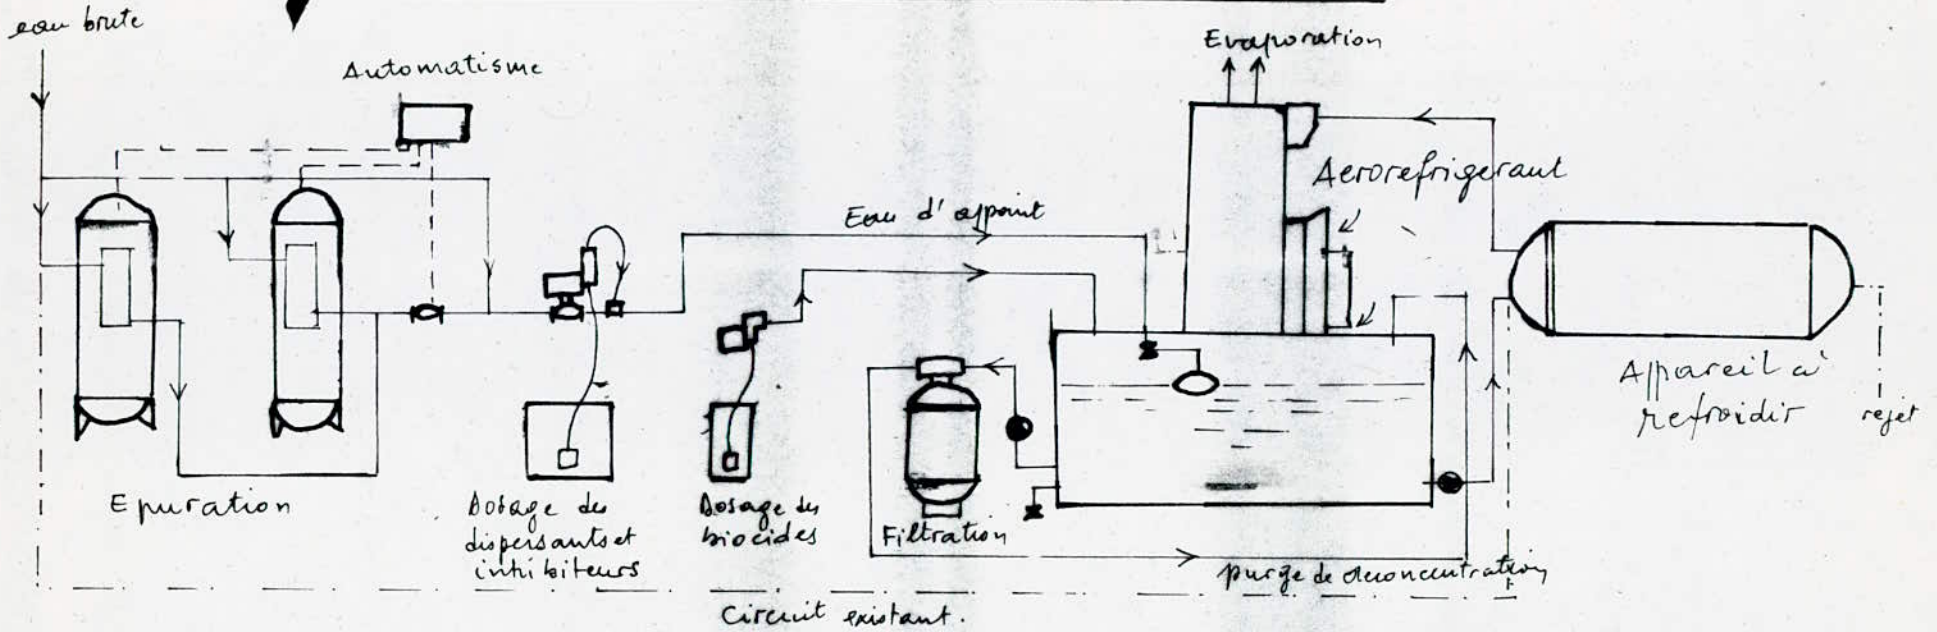 eau brute
Automatisme
Evaporation
Aerorefrigerant
Eau d'appoint
Appareil à
refroidir
rejet
Epuration
Dosage des
dispersants et
inhibiteurs
Dosage des
biocides
Filtration
purge de deconcentration
Circuit existant.